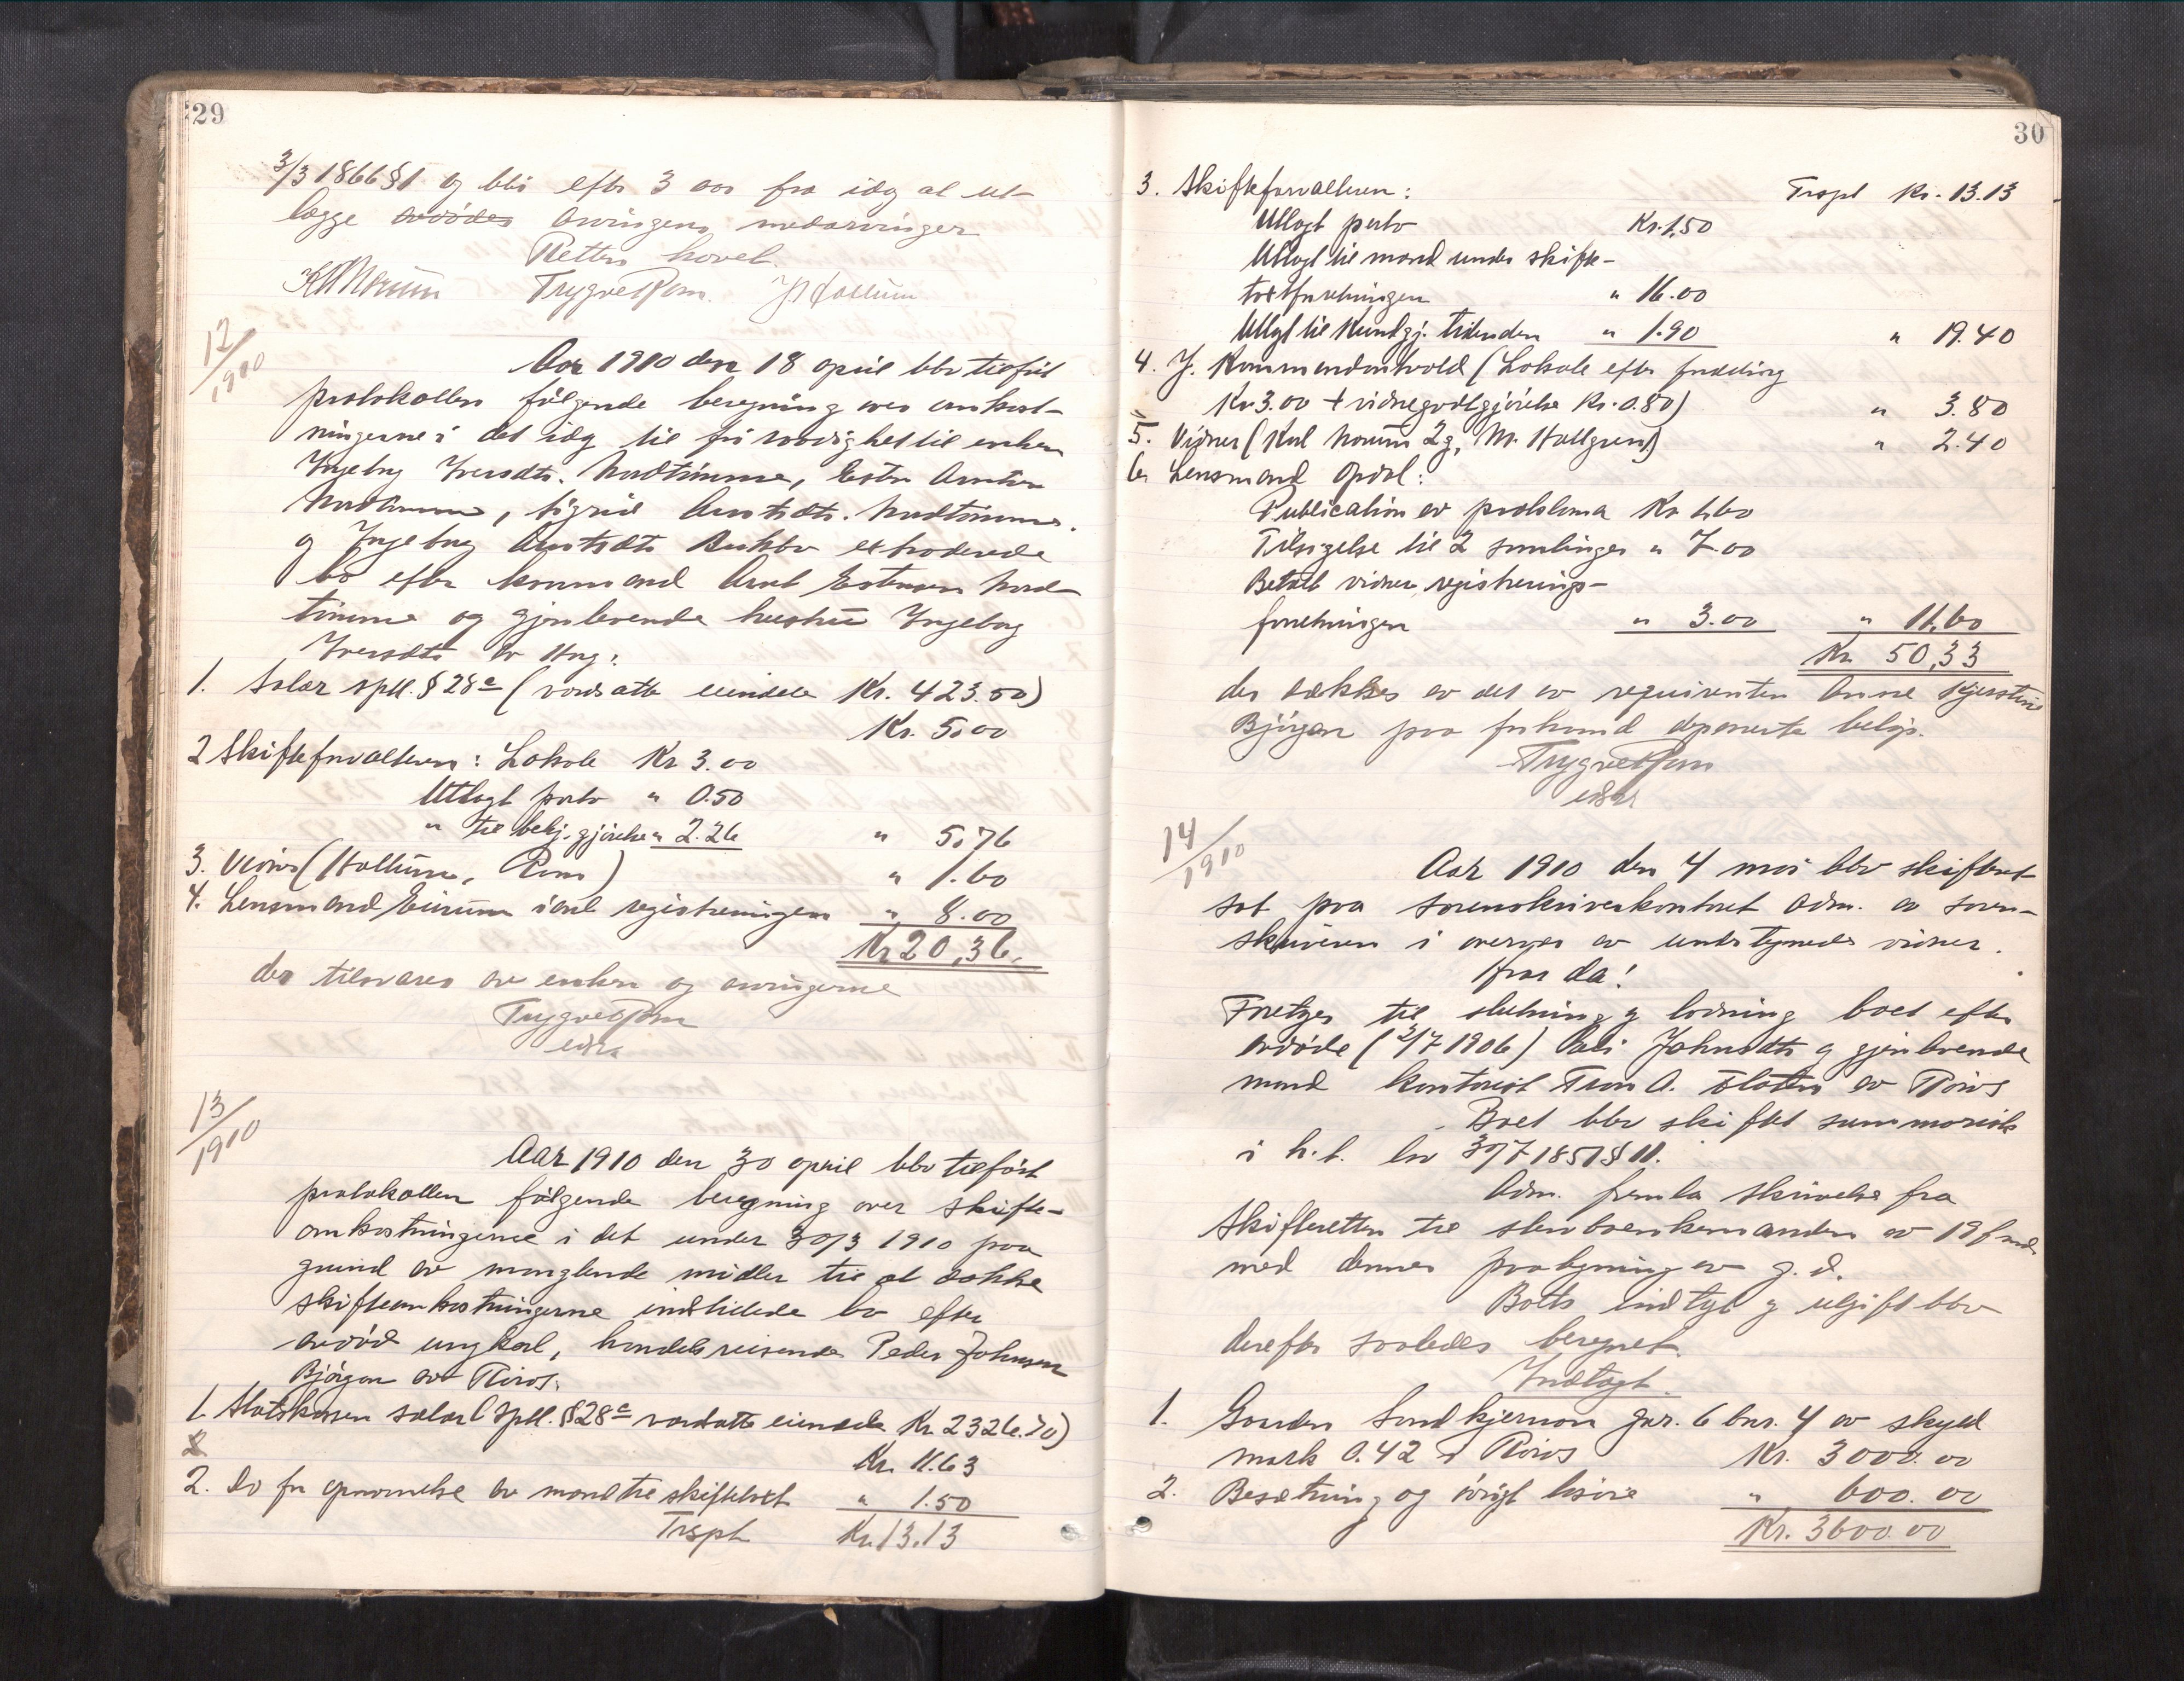 29
3/3 1866 § 1 og blir efter 3 aar fra idag at ut-
lægge avdødes arvingens medarvinger
Retten hævet.
Trygve Rom. J Hollum
12/1910
Aar 1910 den 18 april blev tilført
protokollen følgende beregning over omkost-
ningerne i det idag til fri raadighet til enken
Ingebrg Iversdtr. Nordtømme, Esten Arntsen
Nordtømme, Sigrid Arntsdtr. Nordtømme
og Ingebrg Arntsdtr. extraderede
bo efter kaarmand Arnt Estensen Nord-
tømme og gjenlevende hustru Ingebrg
Iversdtr av
1. Salær spll. § 28 a (vordsatte eiendele Kr. 423.50)
Kr. 5.00
2 Skifteforvalteren: Lokale Kr 3.00
Utlagt porto " 0.50
" til bekj.gjørelse " 2.26 " 5.76
3. Vidner (Hollum, Rom) " 1.60
4. Lensmand Eirum i anl registreringen " 8.00
Kr 20,36.
der tilsvares av enken og arvingerne
Trygve Rom
edsv
13/1910
Aar 1910 den 30 april blev tilført
protokollen følgende beregning over skifte-
omkostningerne i det under 30/3 1910 paa
grund av manglende midler til at dække
skifteomkostningerne indstillede bo efter
avdød ungkarl, handelsreisende Peder Johnsen
Bjørgen av Røros.
1. Statskassen salær (spll. § 28 c vordsatte eiendele Kr. 2326.70)
2
Kr. 11.63
2. Do for opnævnelse av mænd til skiftetaxt " 1.50
Trspt Kr. 13.13
30
3. Skifteforvalteren: Trspt Kr. 13.13
Utlagt porto Kr. 1.50
Utlagt til mænd under skifte-
taxtforretningen " 16.00
Utlagt til Kundgj. tidenden " 1.90 " 19.40
4. J. Kommandantvold (Lokale efter fradrag
Kr 3.00 + vidnegodtgjørelse Kr. 0.80) " 3.80
5. Vidner (Karl Norum 2 g, M. Hallgren) " 2.40
6. Lensmand Opdal:
Publication av proklama Kr 1.60
Tilsigelse til 2 samlinger " 7.00
Betalt vidner registrerings-
forretningen " 3.00 " 11.60
Kr 50,33
der dækkes av det av requirenten Anne Kjerstine
Bjørgen paa forhaand deponerte beløp.
Trygve Rom
edsv
14/1910
Aar 1910 den 4 mai blev skifteret
sat paa sorenskriverkontoret adm. av soren-
skriveren i overvær av undertegnede vidner.
Hvor da!
Foretages til slutning og lodning boet efter
avdøde (2/7 1906) Johnsdtr og gjenlevende
mand kontorist Tron A. av Røros
Boet blev skiftet summarisk
i h.t. lov 30/7 1851 § 11.
Adm. fremla skrivelse fra
Skifteretten til stervboenkemanden av 19 f md
med dennes paategning av g. d.
Boets indtægt og utgift blev
derefter saaledes beregnet.
Indtægt.
1. Gaarden Sundkjernan gnr. 6 bnr. 4 av skyld
mark 0.42 i Røros Kr. 3000.00
2. Besætning og øvrigt løsøre " 600.00
Kr. 3600.00